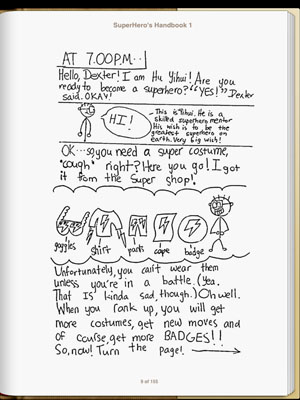 SuperHero's Handbook 1
AT 7:00P.M...
Hello, Dexter! I am Hu Yihui! Are you
ready to become a superhero? "YES!" Dexter
said. OKAY!
HI!
This is Yihui. He is a
skilled superhero mentor
His wish is to be the
greatest superhero on
earth. Very big wish!
OK...so you need a super costume,
*cough* right? Here you go! I got
it from the Super shop!
goggles
shirt
pants
cape
badge
Unfortunately, you can't wear them
unless you're in a battle. (Yea.
That is kinda sad, though.) Oh well.
When you rank up, you will get
more costumes, get new moves and
of course, get more BADGES!!
So, now! Turn the page!
9 of 155